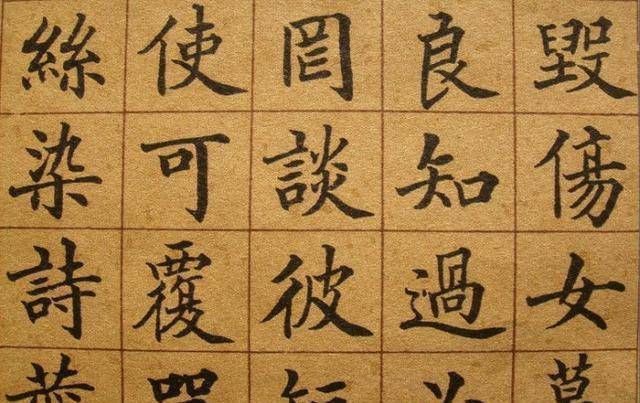 毀傷女
良知過
罔談彼
使可覆
絲染詩